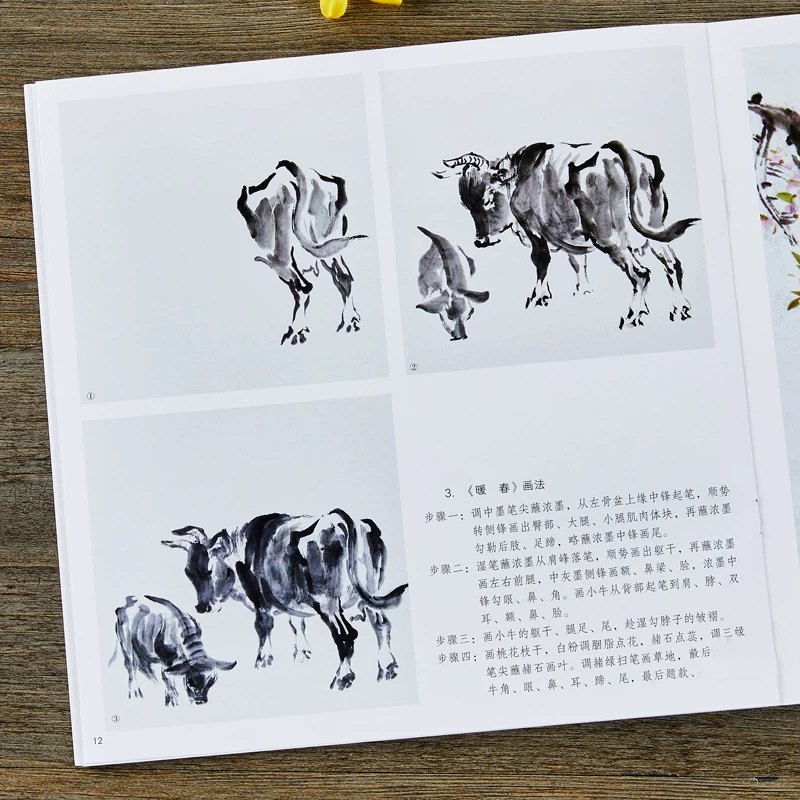 ①
②
③
3. 《暖 春》画法
步骤一：调中墨笔尖蘸浓墨，从左骨盆上缘中锋起笔，顺势
转侧锋画出臀部、大腿、小腿肌肉体块，再蘸浓墨
勾勒后肢、足蹄，略蘸浓墨中锋画尾。
步骤二：湿笔蘸浓墨从肩峰落笔，顺势画出躯干，再蘸浓墨
画左右前腿，中灰墨侧锋画额、鼻梁、脸，浓墨中
锋勾眼、鼻、角。画小牛从背部起笔到肩、脖、双
耳、额、鼻、脸。
步骤三：画小牛的躯干、腿足、尾，趁湿勾脖子的皱褶。
步骤四：画桃花枝干，白粉调胭脂点花，赭石点蕊，调三绿
笔尖蘸赭石画叶。调赭绿扫笔画草地，最后
牛角、眼、鼻、耳、蹄、尾，最后题款、
12